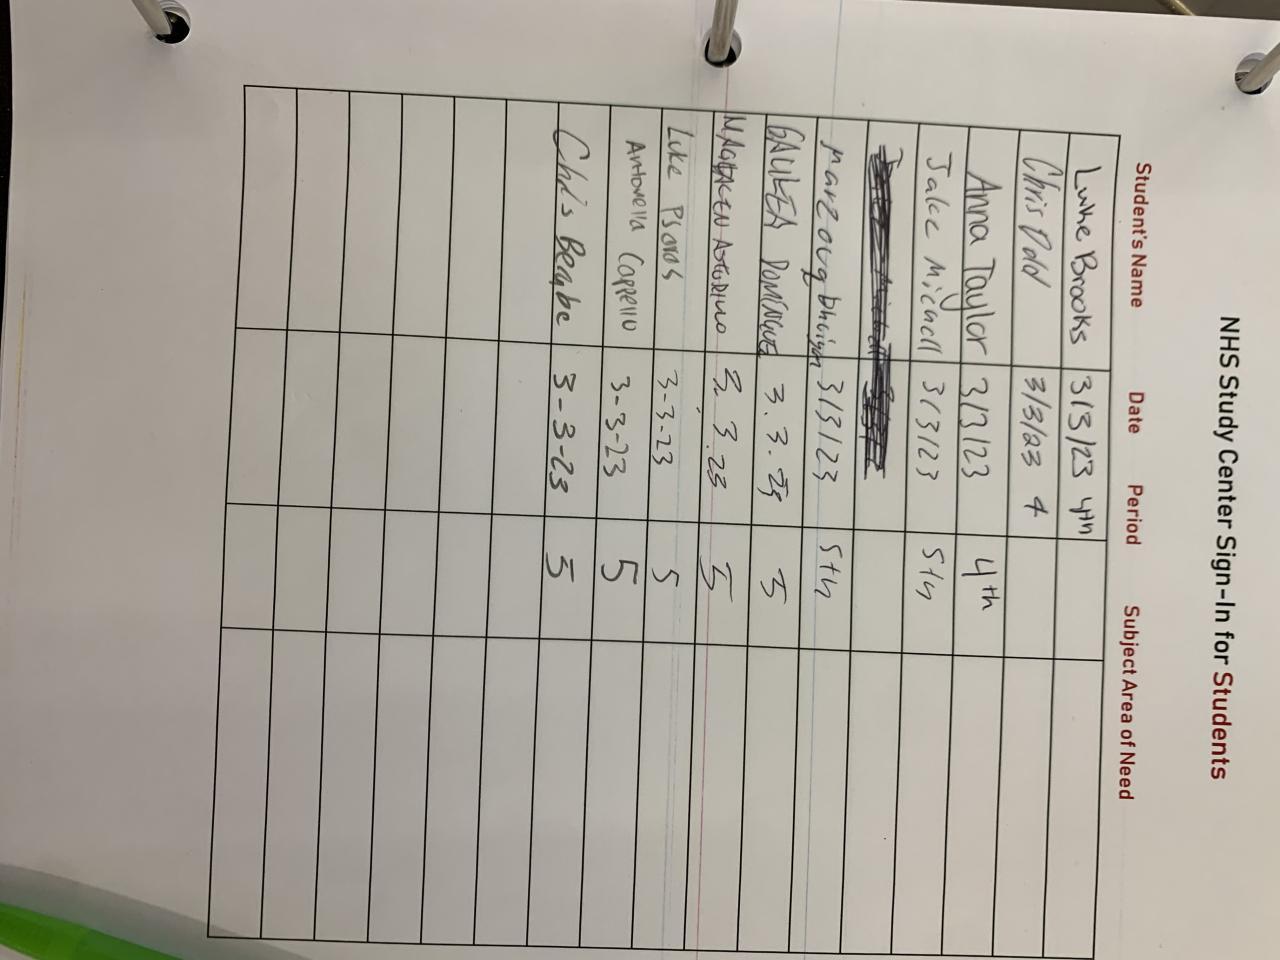 NHS Study Center Sign-In for Students
Student's Name Date Period Subject Area of Need
Luke Brooks 3/3/23 4th
Chris Odd 3/3/23 4
Anna Taylor 3/3/23 4th
Jake 3/3/23 5th
Marzouq bhuiyan 3/3/23 5th
GALILEA DOMINGUEZ 3.3.23 5
3.3.23 5
Luke Psaras 3-3-23 5
Antonella Cappello 3-3-23 5
Chris Berube 3-3-23 5